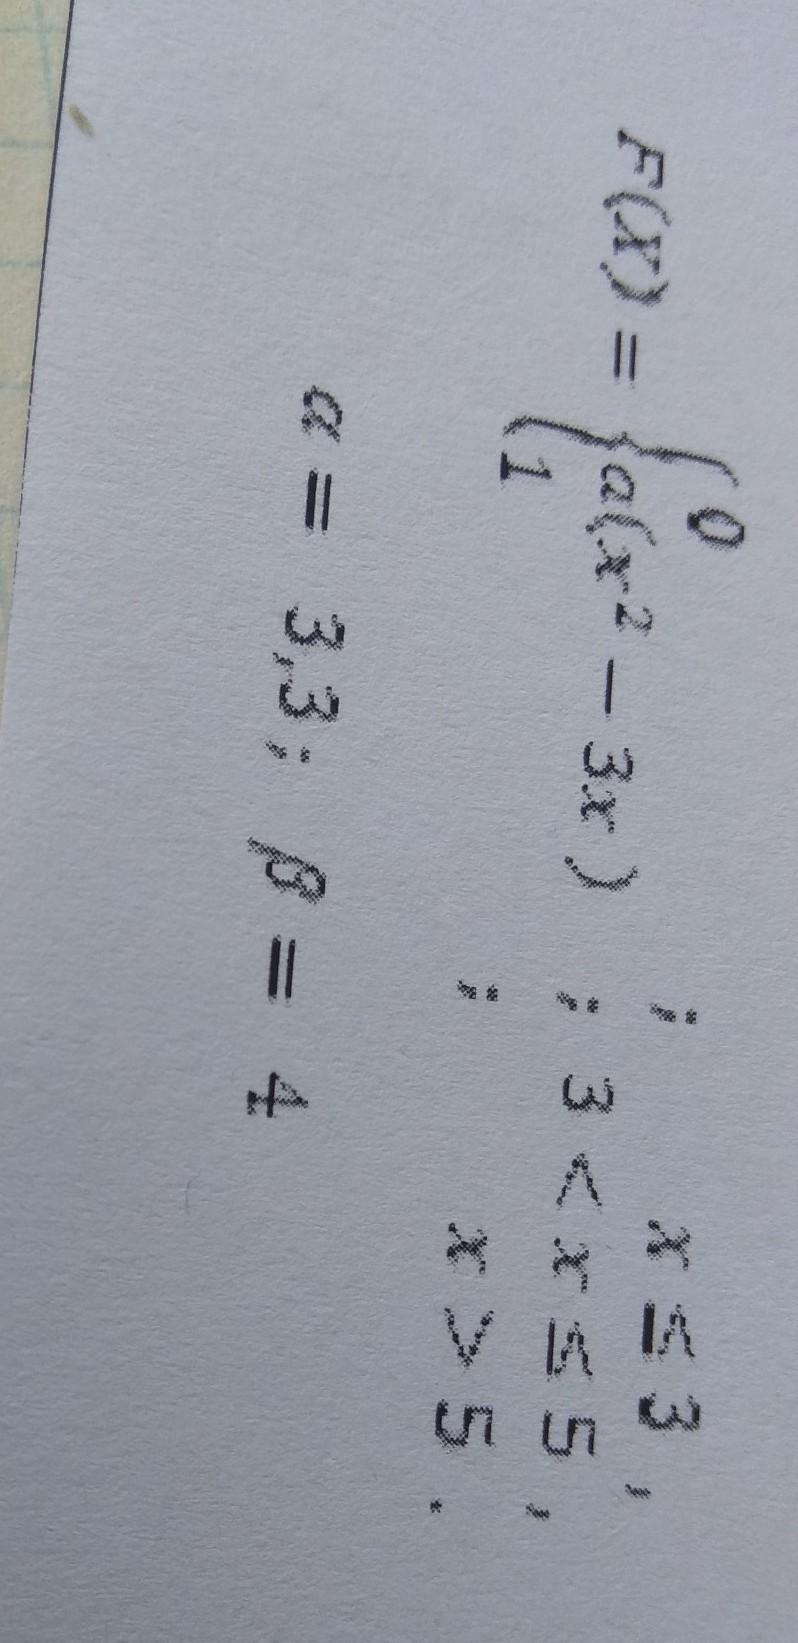 0 ; x ≤ 3 ,
F(X) = { a(x² − 3x) ; 3 < x ≤ 5 ,
1 ; x > 5 .
α = 3,3; β = 4